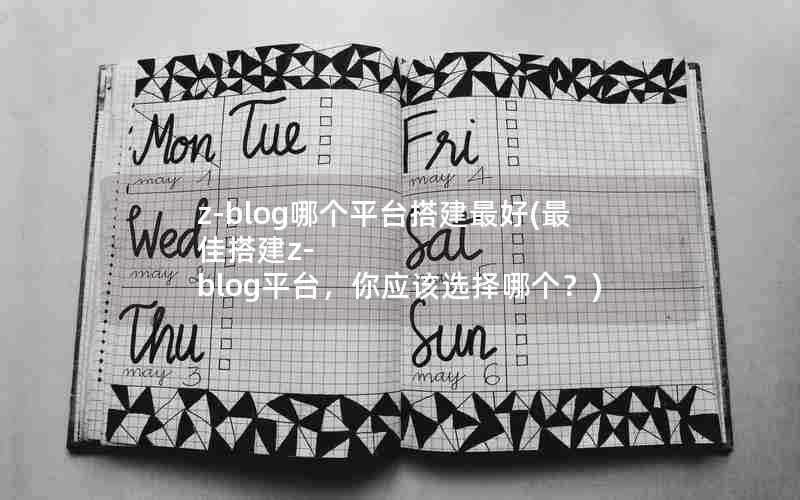 Mon
may 1
Tue
Wed
may 2
Thu
may 3
Fri
may 4
Sat
Sun
may 6
z-blog哪个平台搭建最好(最
佳搭建z-
blog平台，你应该选择哪个？)